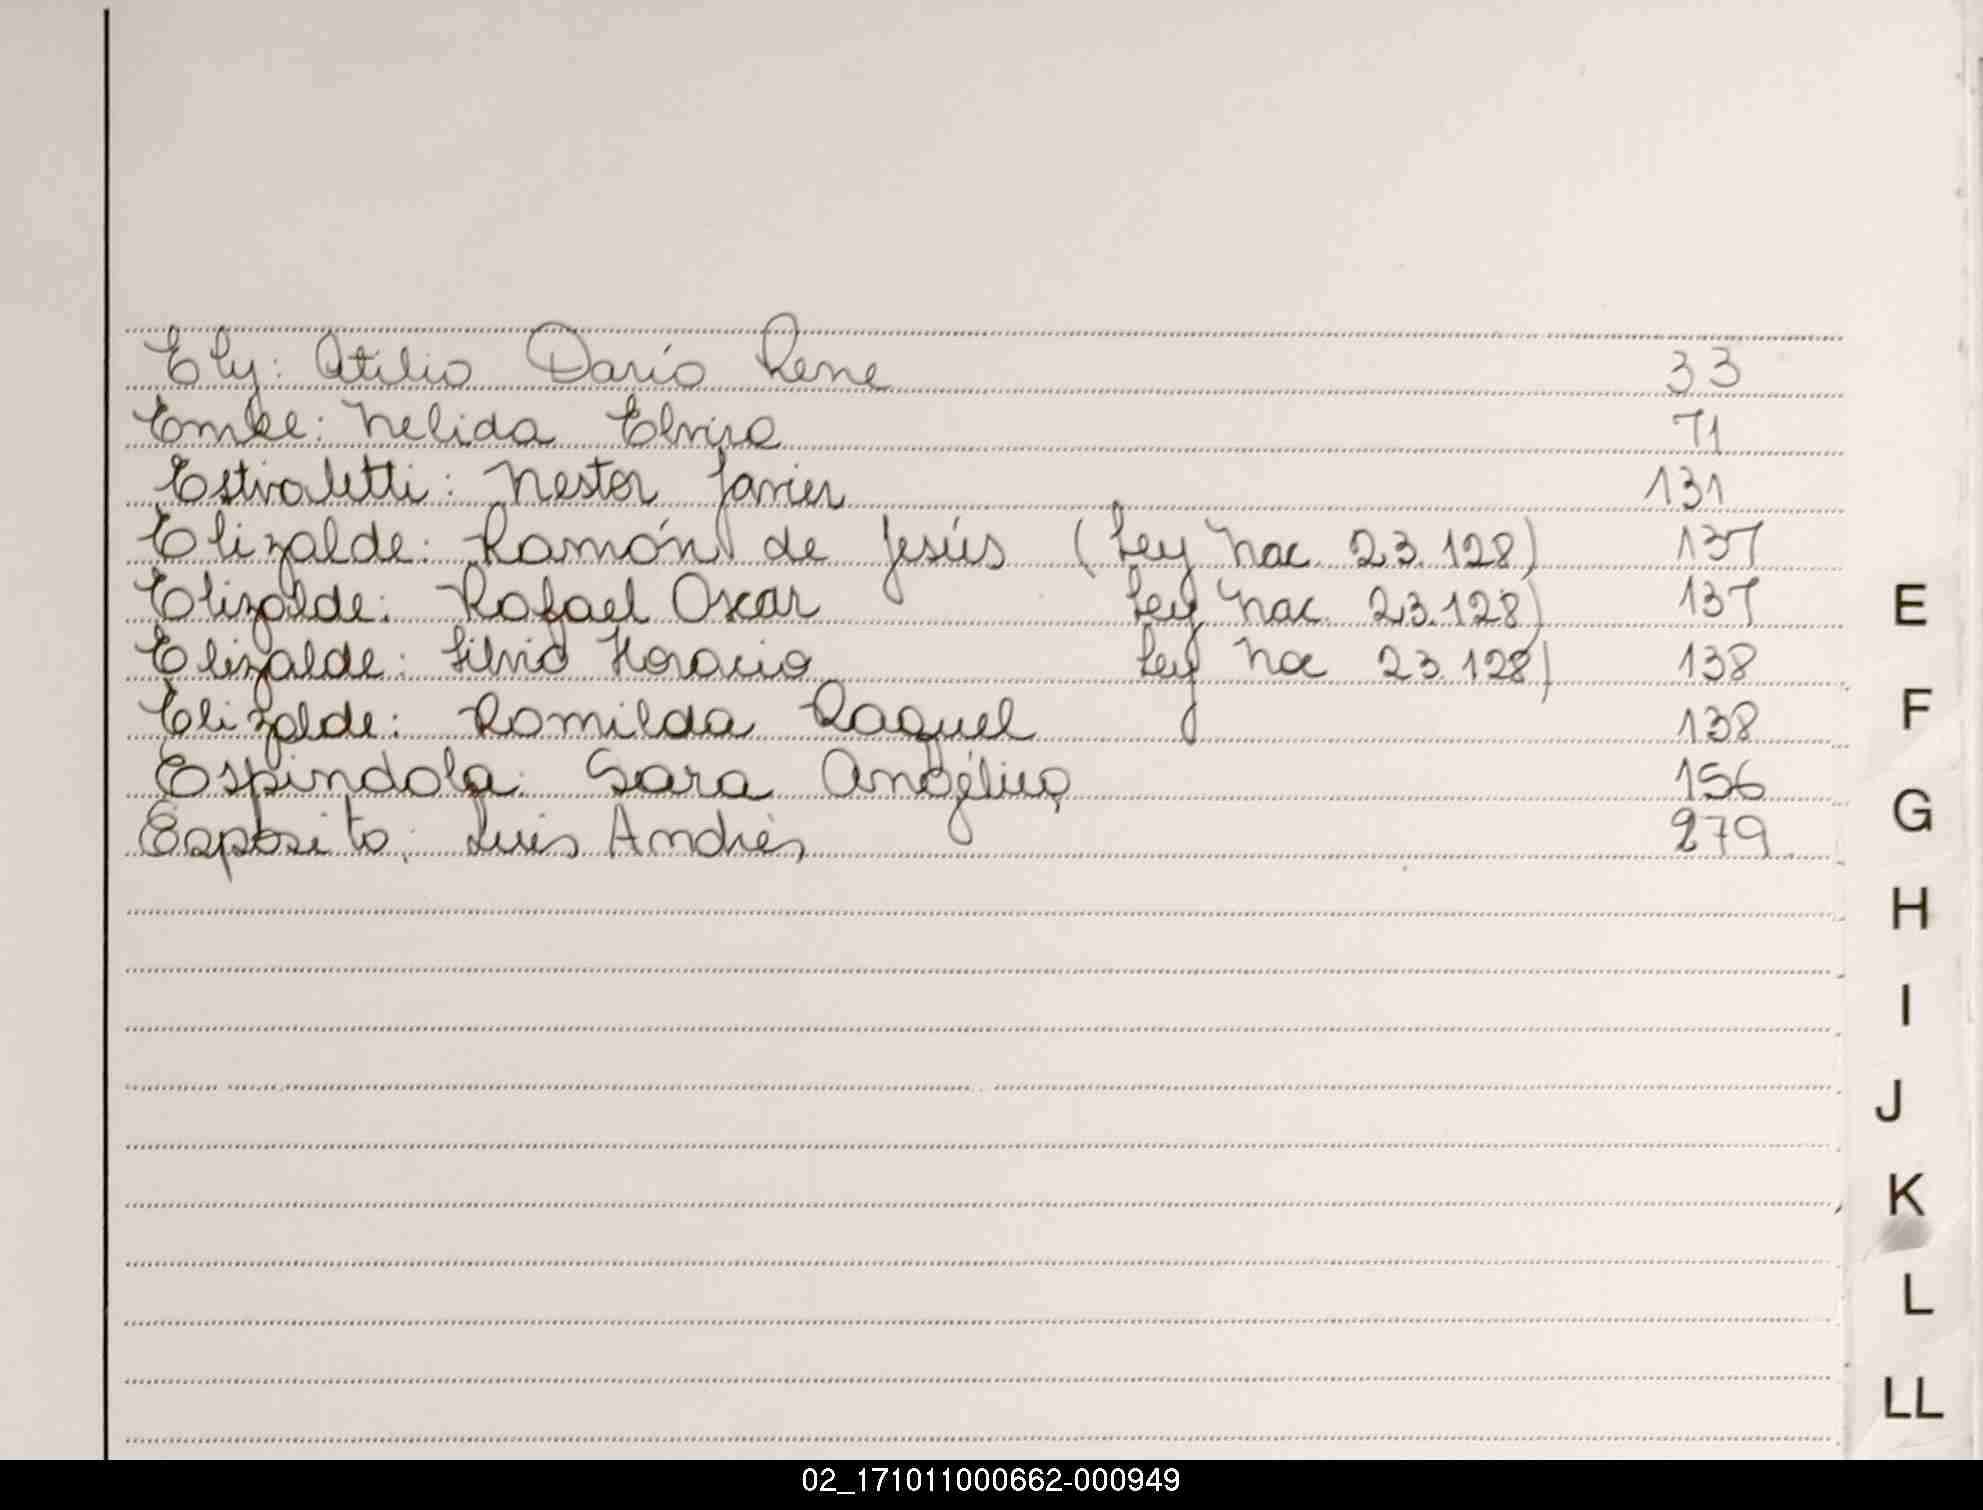 Ely: Atilio Darío Rene 33
Emke: Nelida Elvira 71
Estivaletti: Nestor Javier 131
Elizalde: Ramón de Jesús (Ley Nac. 23.128) 137
Elizalde: Rafael Oscar Ley Nac. 23.128) 137
Elizalde: Silvio Horacio Ley Nac 23.128) 138
Elizalde: Romilda Raquel 138
Espindola: Sara Angélica 156
Esposito: Luis Andrés 279
E
F
G
H
I
J
K
L
LL
02_171011000662-000949